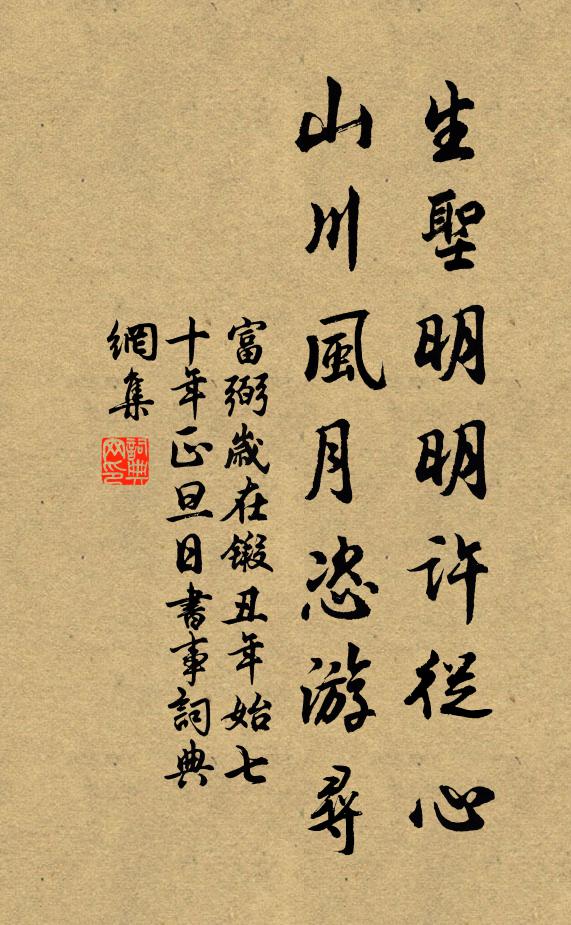 生聖明明許從心
山川風月恣游尋
富弼歲在鍛丑年始七
十年正旦日書事詞典
網集
詞典
网印